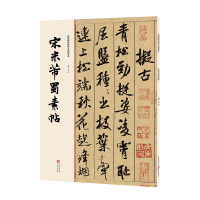 宋米芾蜀素帖
擬古
青松勁挺姿凌霄耻
屈盤種種出枝葉牽
連上松端秋花起絳烟